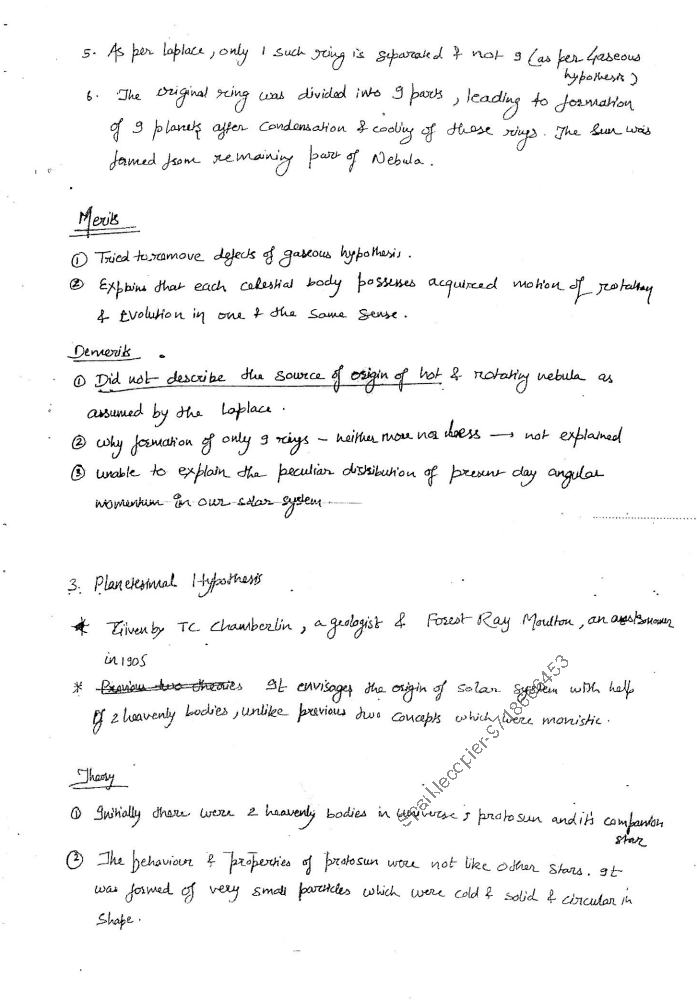 5. As per laplace, only 1 such ring is separated & not 9 (as per Gaseous
hypothesis)
6. The original ring was divided into 9 parts, leading to formation
of 9 planets after condensation & cooling of these rings. The Sun was
formed from remaining part of Nebula.
Merits
① Tried to remove defects of gaseous hypothesis.
② Explains that each celestial body possesses acquired motion of rotation
& Evolution in one & the same sense.
Demerits
① Did not describe the source of origin of hot & rotating nebula as
assumed by the Laplace.
② Why formation of only 9 rings - neither more nor less → not explained
③ unable to explain the peculiar distribution of present day angular
momentum in our solar system
3. Planetesimal Hypothesis
* Given by TC Chamberlin, a geologist & Forest Ray Moulton, an
in 1905
* Previous two theories It envisages the origin of solar system with help
of 2 heavenly bodies, unlike previous two concepts which were monistic.
Theory
① Initially there were 2 heavenly bodies in universe; protosun and its companion
star
② The behaviour & properties of protosun were not like other stars. It
was formed of very small particles which were cold & solid & circular in
shape.